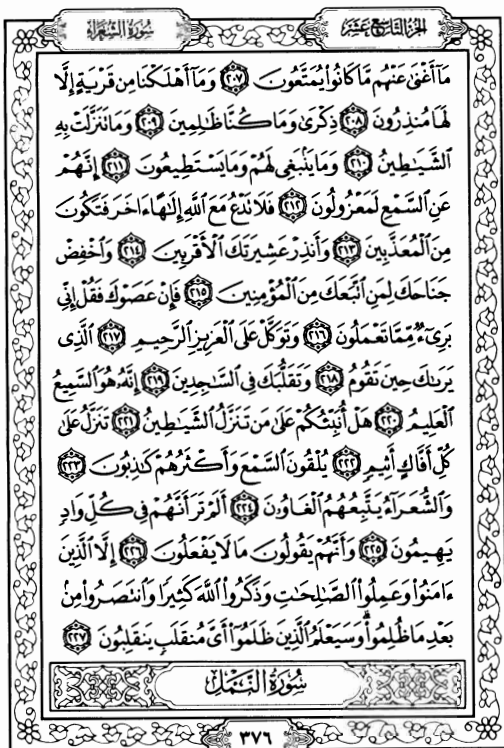 سُورَةُ الشُّعَرَاءِ
الجُزْءُ التَّاسِعَ عَشَرَ
مَآ أَغْنَىٰ عَنْهُم مَّا كَانُوا۟ يُمَتَّعُونَ ٢٠٧ وَمَآ أَهْلَكْنَا مِن قَرْيَةٍ إِلَّا
لَهَا مُنذِرُونَ ٢٠٨ ذِكْرَىٰ وَمَا كُنَّا ظَٰلِمِينَ ٢٠٩ وَمَا تَنَزَّلَتْ بِهِ
الشَّيَٰطِينُ ٢١٠ وَمَا يَنۢبَغِى لَهُمْ وَمَا يَسْتَطِيعُونَ ٢١١ إِنَّهُمْ
عَنِ السَّمْعِ لَمَعْزُولُونَ ٢١٢ فَلَا تَدْعُ مَعَ اللَّهِ إِلَٰهًا ءَاخَرَ فَتَكُونَ
مِنَ الْمُعَذَّبِينَ ٢١٣ وَأَنذِرْ عَشِيرَتَكَ الْأَقْرَبِينَ ٢١٤ وَاخْفِضْ
جَنَاحَكَ لِمَنِ اتَّبَعَكَ مِنَ الْمُؤْمِنِينَ ٢١٥ فَإِنْ عَصَوْكَ فَقُلْ إِنِّى
بَرِىٓءٌ مِّمَّا تَعْمَلُونَ ٢١٦ وَتَوَكَّلْ عَلَى الْعَزِيزِ الرَّحِيمِ ٢١٧ الَّذِى
يَرَىٰكَ حِينَ تَقُومُ ٢١٨ وَتَقَلُّبَكَ فِى السَّٰجِدِينَ ٢١٩ إِنَّهُ هُوَ السَّمِيعُ
الْعَلِيمُ ٢٢٠ هَلْ أُنَبِّئُكُمْ عَلَىٰ مَن تَنَزَّلُ الشَّيَٰطِينُ ٢٢١ تَنَزَّلُ عَلَىٰ
كُلِّ أَفَّاكٍ أَثِيمٍ ٢٢٢ يُلْقُونَ السَّمْعَ وَأَكْثَرُهُمْ كَٰذِبُونَ ٢٢٣
وَالشُّعَرَآءُ يَتَّبِعُهُمُ الْغَاوُۥنَ ٢٢٤ أَلَمْ تَرَ أَنَّهُمْ فِى كُلِّ وَادٍ
يَهِيمُونَ ٢٢٥ وَأَنَّهُمْ يَقُولُونَ مَا لَا يَفْعَلُونَ ٢٢٦ إِلَّا الَّذِينَ
ءَامَنُوا۟ وَعَمِلُوا۟ الصَّٰلِحَٰتِ وَذَكَرُوا۟ اللَّهَ كَثِيرًا وَانتَصَرُوا۟ مِنۢ
بَعْدِ مَا ظُلِمُوا۟ ۗ وَسَيَعْلَمُ الَّذِينَ ظَلَمُوٓا۟ أَىَّ مُنقَلَبٍ يَنقَلِبُونَ ٢٢٧
سُورَةُ النَّمْلِ
٣٧٦